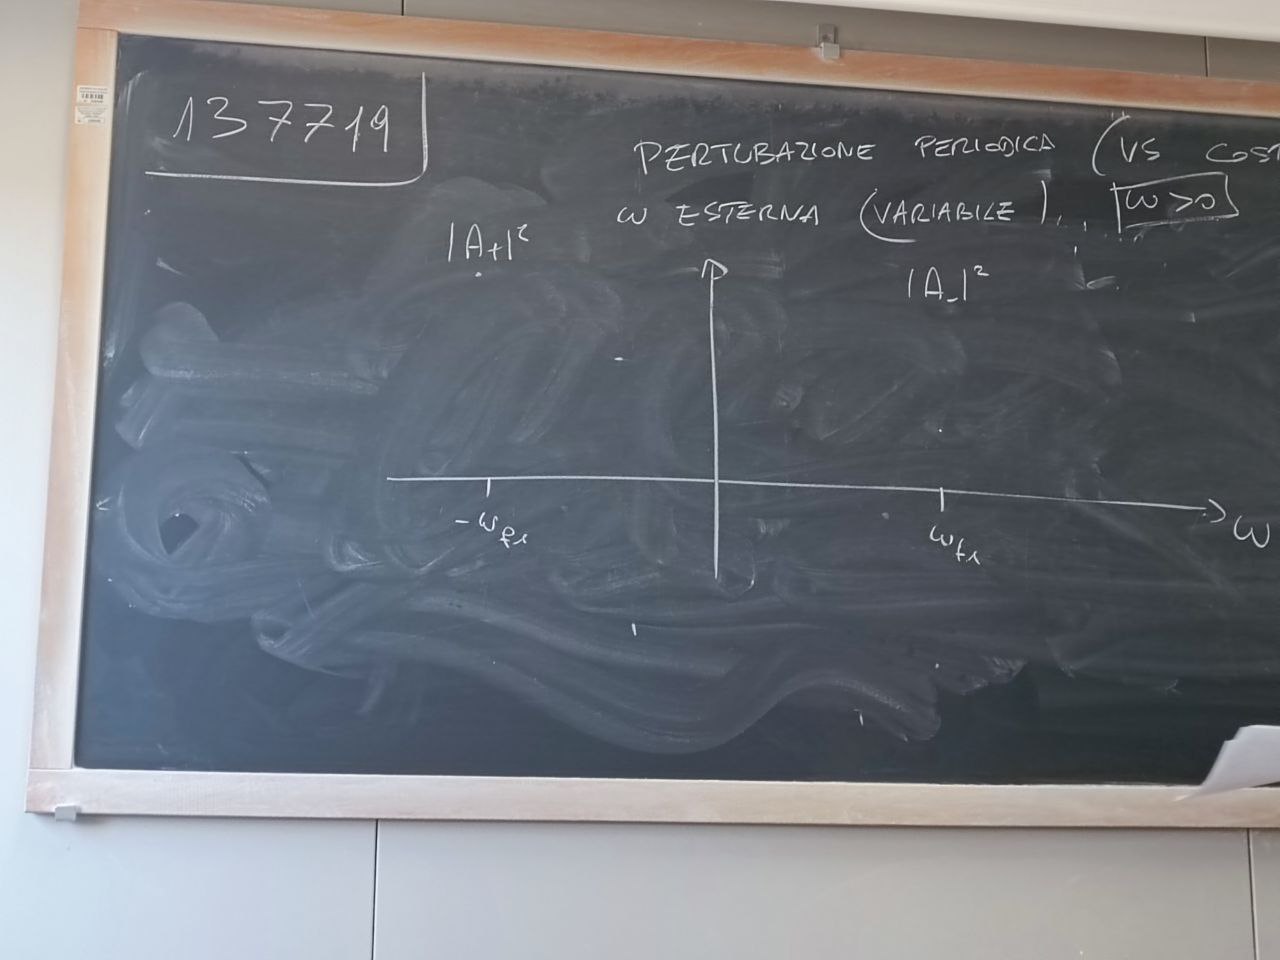 137719
PERTUBAZIONE PERIODICA (VS COST
ω ESTERNA (VARIABILE)... ω>0
|A+|²
|A-|²
-ωfi
ωfi
ω